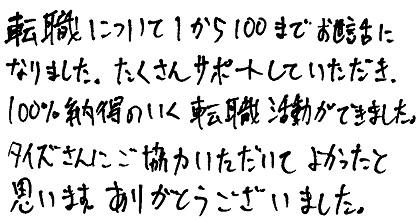 転職について1から100までお世話に
なりました。たくさんサポートしていただき、
100%納得のいく転職活動ができました。
タイズさんにご協力いただいてよかったと
思います。ありがとうございました。